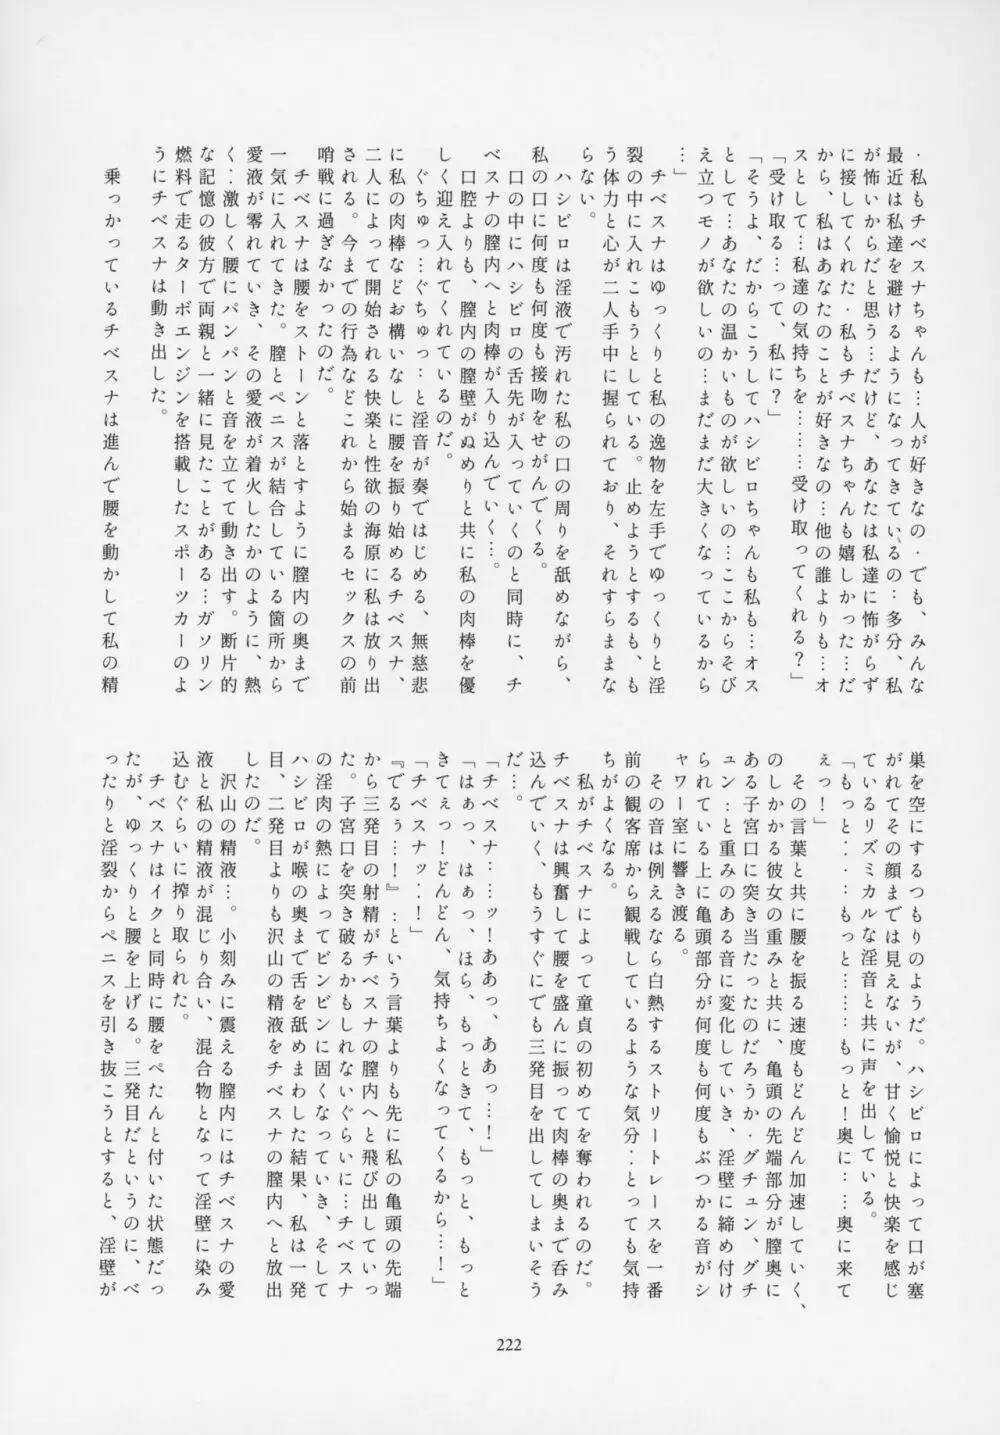 ・私もチベスナちゃんも…人が好きなの・でも、みんな
最近は私達を避けるようになってきている の：多分、私
が怖いからだと思う…だけど、あなたは私達に怖がらず
に接してくれた・私もチベスナちゃんも嬉しかった…だ
から、私はあなたのことが好きなの…他の誰よりも…オ
スとして…私達の気持ちを………受け取ってくれる？」
「受け取る…って、私に？」
「そうよ、だからこうしてハシビロちゃんも私も…オス
として…あなたの温かいものが欲しいの…ここからそび
え立つモノが欲しいの…まだまだ大きくなっているから
…」
チベスナはゆっくりと私の逸物を左手でゆっくりと淫
裂の中に入れこもうとしている。止めようとするも、も
う体力と心が二人手中に握られており、それすらままな
らない。
ハシビロは淫液で汚れた私の口の周りを舐めながら、
私の口に何度も何度も接吻をせがんでくる。
口の中にハシビロの舌先が入っていくのと同時に、チ
ベスナの膣内へと肉棒が入り込んでいく…。
口腔よりも、膣内の膣壁がぬめりと共に私の肉棒を優
しく迎え入れてくれているのだ。
ぐちゅっ…ぐちゅっ…と淫音が奏ではじめる、無慈悲
に私の肉棒などお構いなしに腰を振り始めるチベスナ、
二人によって開始される快楽と性欲の海原に私は放り出
される。今までの行為などこれから始まるセックスの前
哨戦に過ぎなかったのだ。
チベスナは腰をストーンと落とすように膣内の奥まで
一気に入れてきた。膣とペニスが結合している箇所から
愛液が零れていき、その愛液が着火したかのように、熱
く：激しく腰にパンパンと音を立てて動き出す。断片的
な記憶の彼方で両親と一緒に見たことがある…ガソリン
燃料で走るターボエンジンを搭載したスポーツカーのよ
うにチベスナは動き出した。
乗っかっているチベスナは進んで腰を動かして私の精
巣を空にするつもりのようだ。ハシビロによって口が塞
がれてその顔までは見えないが、甘く愉悦と快楽を感じ
ているリズミカルな淫音と共に声を出している。
「もっと・・・もっと……もっと！奥に…：奥に来て
ぇっ！」
その言葉と共に腰を振る速度もどんどん加速していく、
のしかかる彼女の重みと共に、亀頭の先端部分が膣奥に
ある子宮口に突き当たったのだろうか・グチュン、グチ
ュン：と重みのある音に変化していき、淫壁に締め付け
られている上に亀頭部分が何度も何度もぶつかる音がシ
ャワー室に響き渡る。
その音は例えるなら白熱するストリートレースを一番
前の観客席から観戦しているような気分：とっても気持
ちがよくなる。
私がチベスナによって童貞の初めてを奪われるのだ。
チベスナは興奮して腰を盛んに振って肉棒の奥まで呑み
込んでいく、もうすぐにでも三発目を出してしまいそう
だ…。
「チベスナ…：ッ！ああっ、ああっ…！」
「はぁっ、はぁっ、ほら、もっときて、もっと、もっと
きてぇっ！どんどん、気持ちよくなってくるから…！」
「チベスナッ：！」
『でるぅ…！』：という言葉よりも先に私の亀頭の先端
から三発目の射精がチベスナの膣内へと飛び出していっ
た。子宮口を突き破るかもしれないぐらいに…チベスナ
の淫肉の熱によってビンビンに固くなっていき、そして
ハシビロが喉の奥まで舌を舐めまわした結果、私は一発
目、二発目よりも沢山の精液をチベスナの膣内へと放出
したのだ。
沢山の精液…。小刻みに震える膣内にはチベスナの愛
液と私の精液が混じり合い、混合物となって淫壁に染み
込むぐらいに搾り取られた。
チベスナはイクと同時に腰をぺたんと付いた状態だっ
たが、ゆっくりと腰を上げる。三発目だというのに、べ
ったりと淫裂からペニスを引き抜こうとすると、淫壁が
222